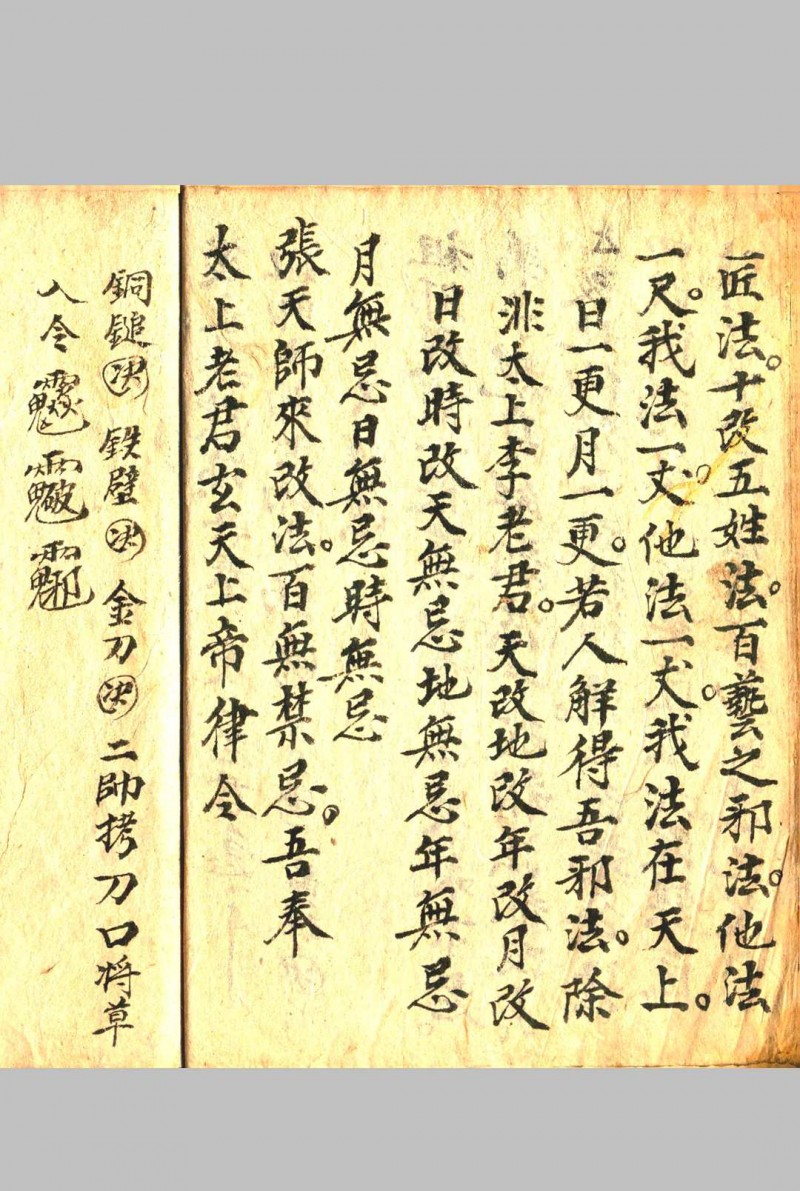 匠法。十改五姓法。百藝之邪法。他法
一尺。我法一丈。他法一丈。我法在天上。
日一更月一更。若人解得吾邪法。除
非太上李老君。天改地改年改月改
日改時改天無忌地無忌年無忌
月無忌日無忌時無忌
張天師來改法。百無禁忌。吾奉
太上老君玄天上帝律令
銅鎚決鉄壁決金刀決二帥拷刀口将草
入令